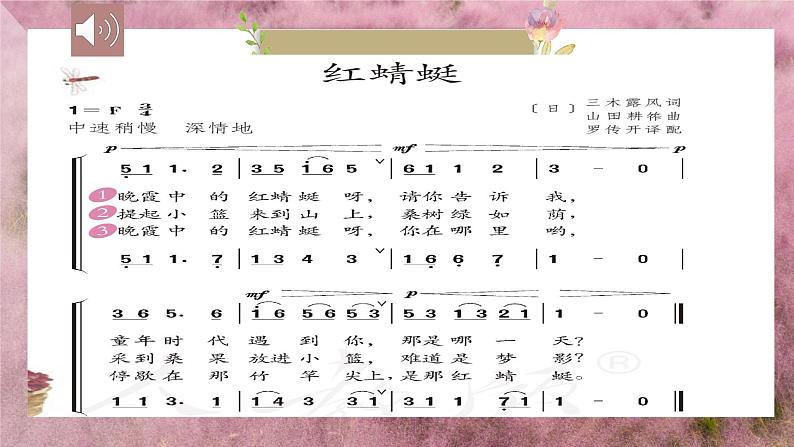 红蜻蜓
1=F 3/4
〔日〕三木露风词
山田耕筰曲
罗传开译配
中速稍慢 深情地
p mf p
5 1 1. 2 | 3 5 1 6 5 | 6 1 1 2 | 3 - 0
① 晚霞中的红蜻蜓呀，请你告诉我，
② 提起小篮来到山上，桑树绿如荫，
③ 晚霞中的红蜻蜓呀，你在哪里哟，
5 1 1. 7 | 1 3 4 3 | 1 6 6 7 | 1 - 0
mf p
3 6 5. 6 | 1 6 5 6 5 3 | 5 3 1 3 2 1 | 1 - 0
童年时代遇到你，那是哪一天？
采到桑果放进小篮，难道是梦影？
停歇在那竹竿尖上，是那红蜻蜓。